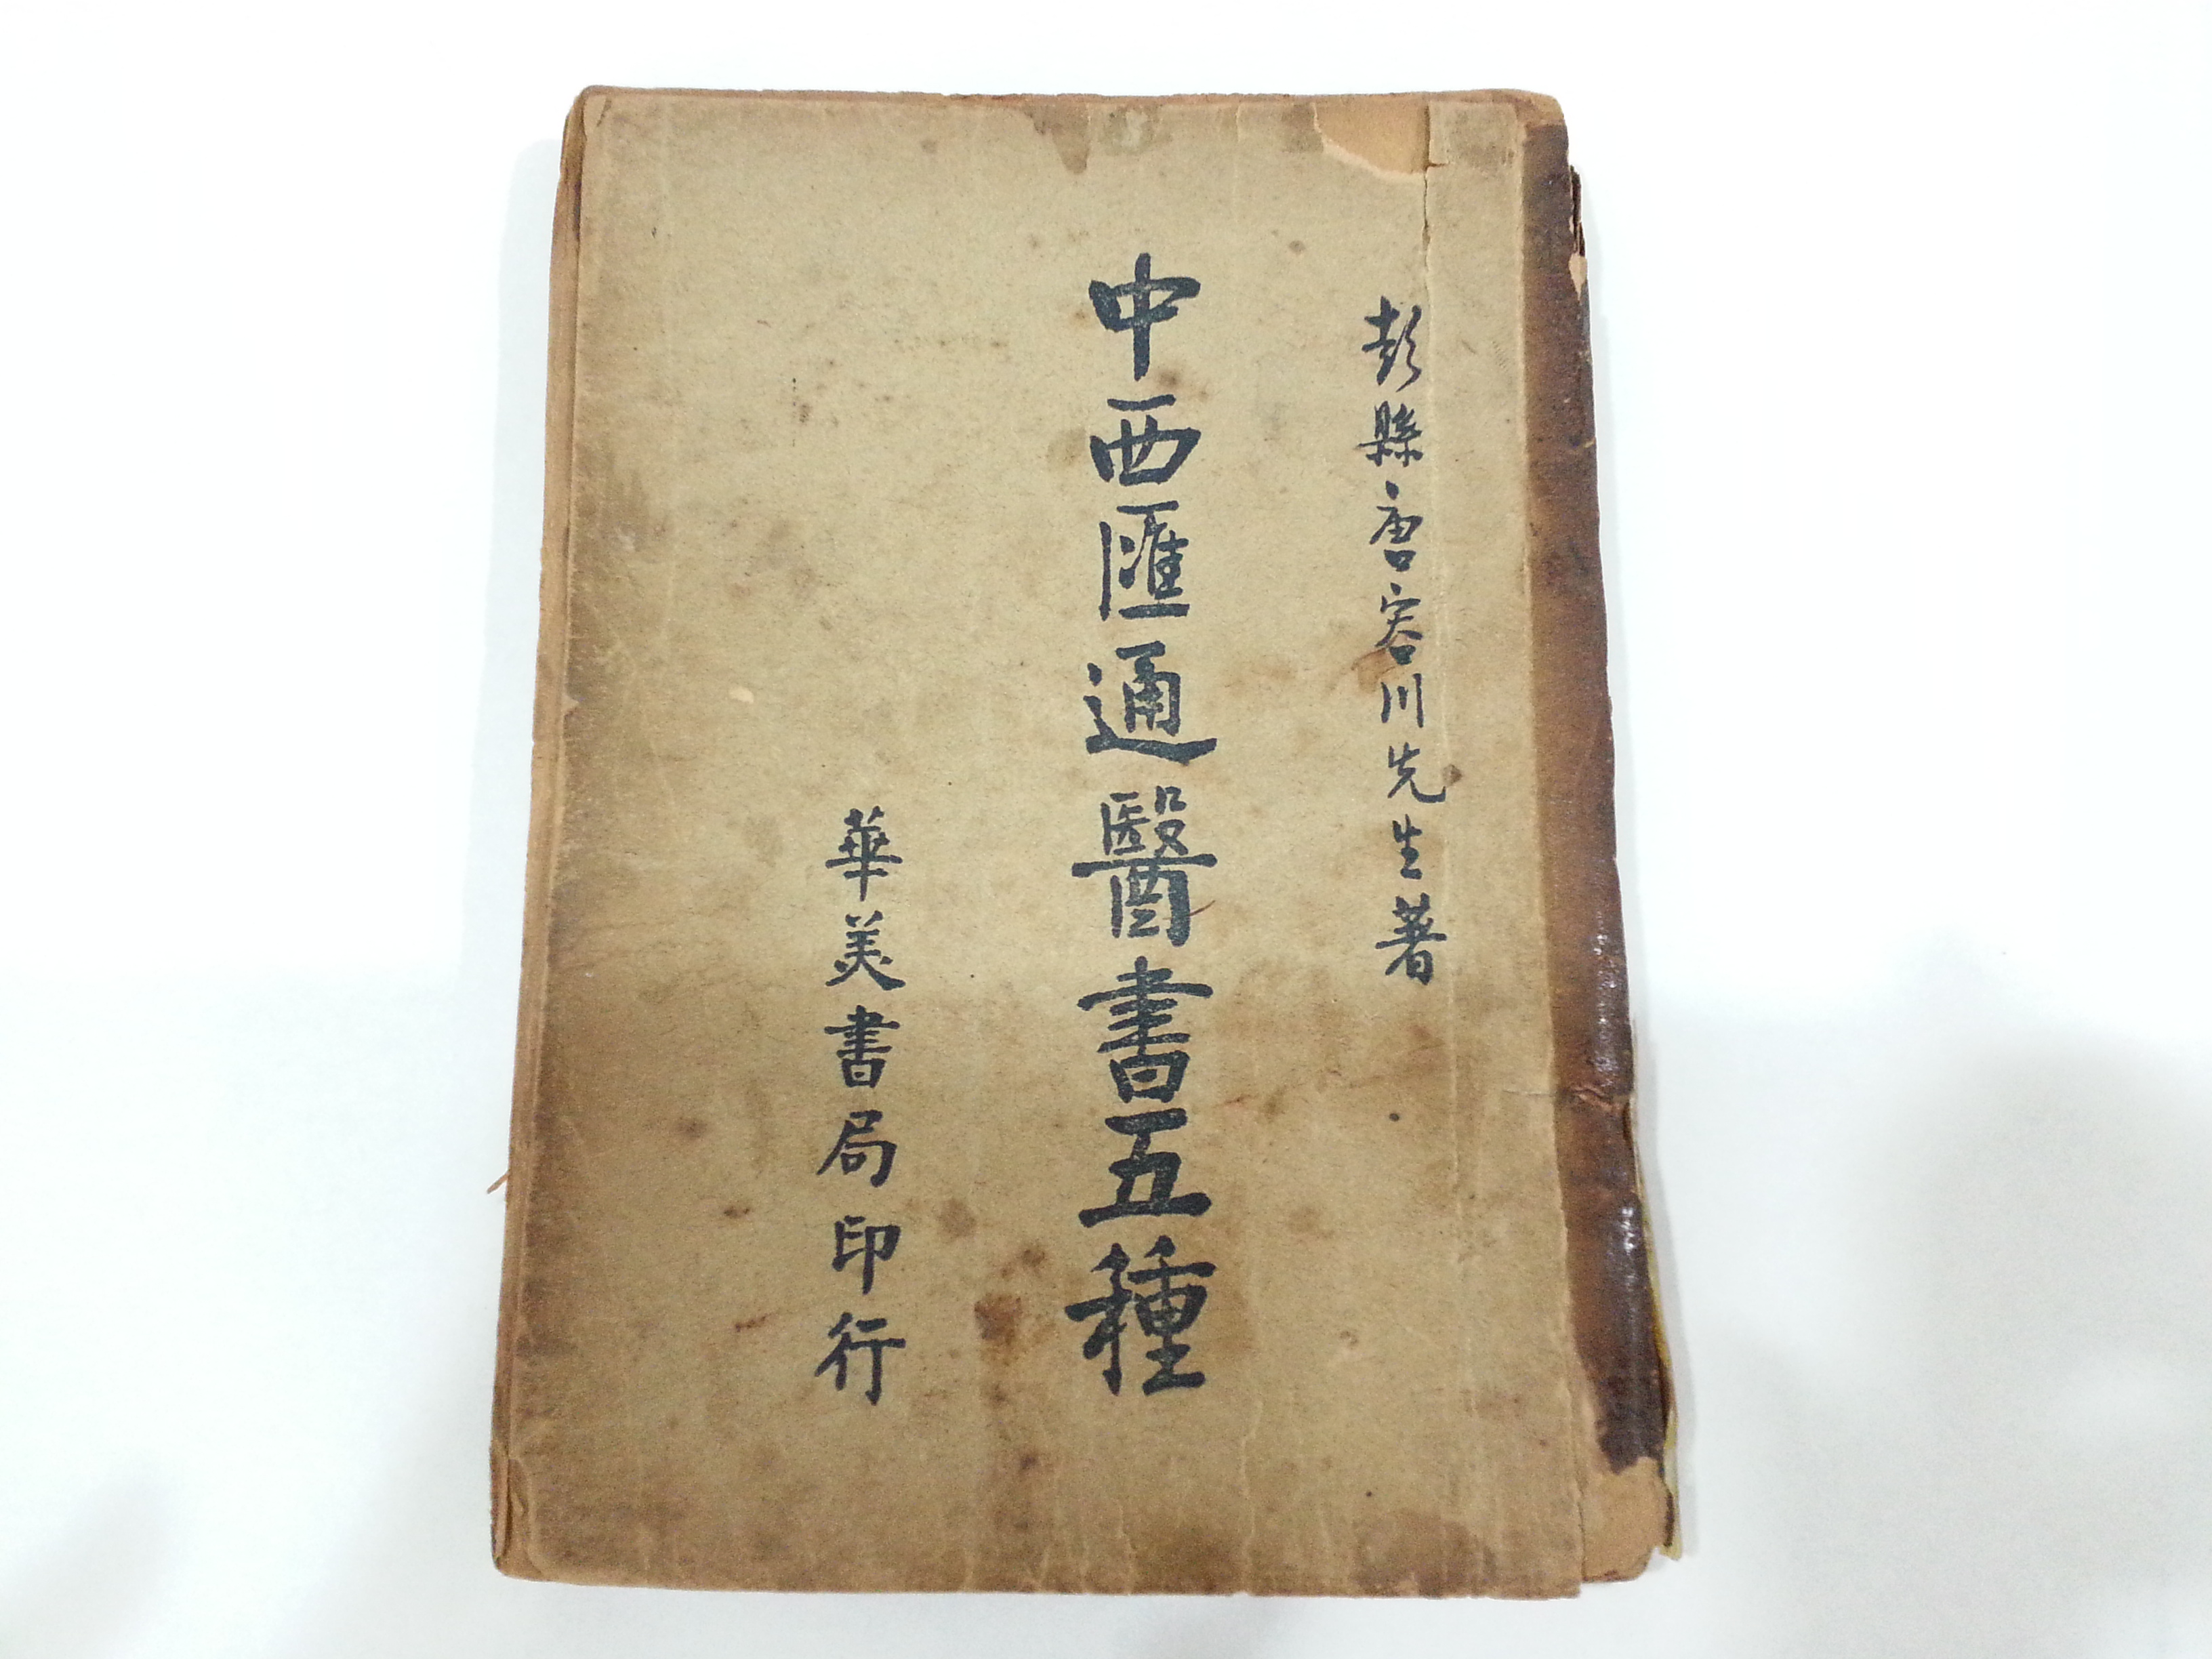 彭縣唐容川先生著
中西匯通醫書五種
華美書局印行